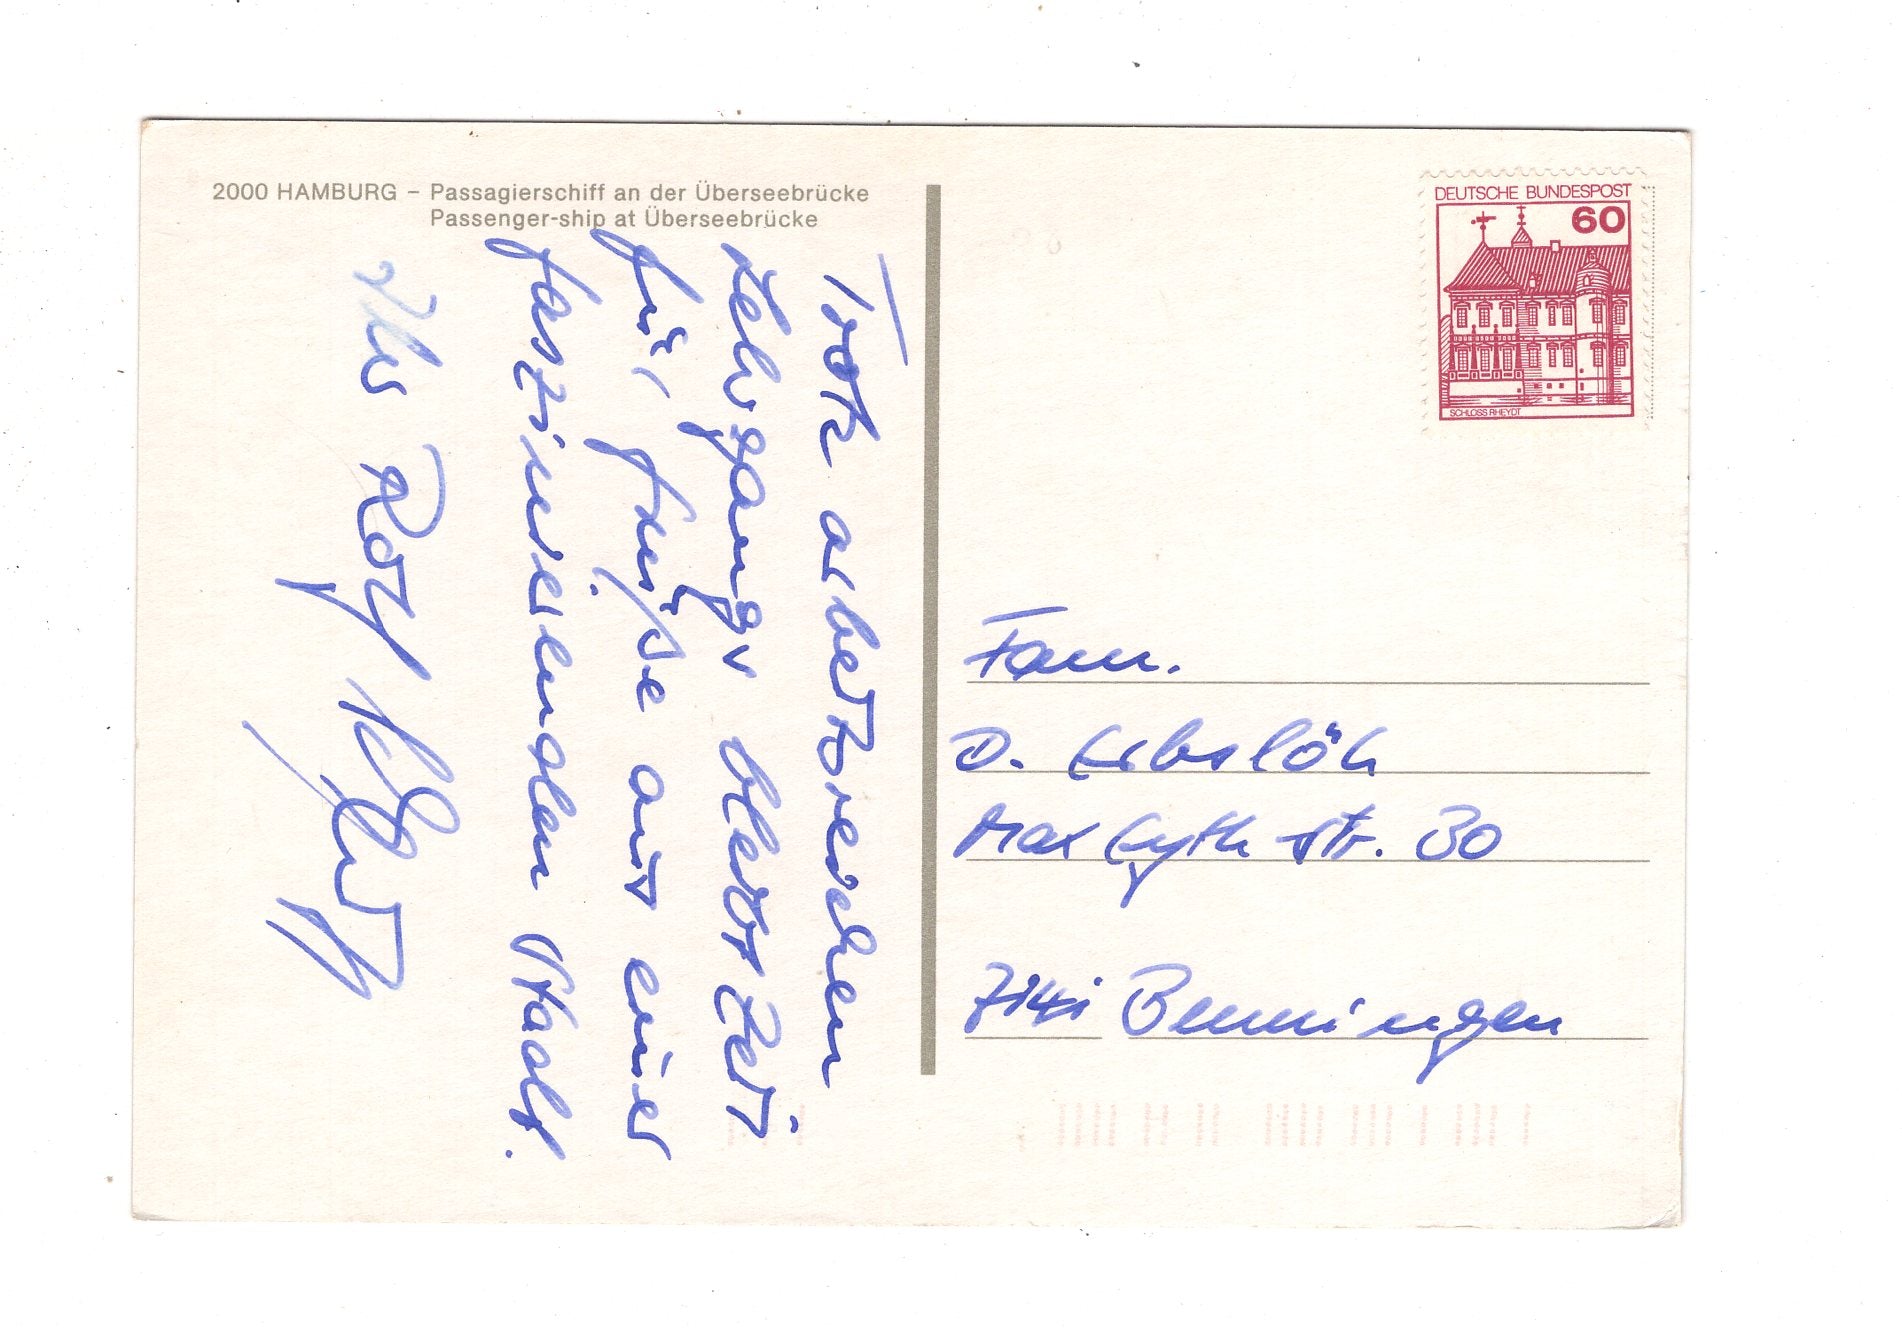 2000 HAMBURG – Passagierschiff an der Überseebrücke
Passenger-ship at Überseebrücke
DEUTSCHE BUNDESPOST
60
SCHLOSS RHEYDT
Trotz arbeitsreichen
Lehrgangs bleibt Zeit
für, Grüße aus einer
faszinierenden Stadt.
Ihr Rolf
Fam.
D. Erbslöh
Max Eyth Str. 30
7141 Benningen